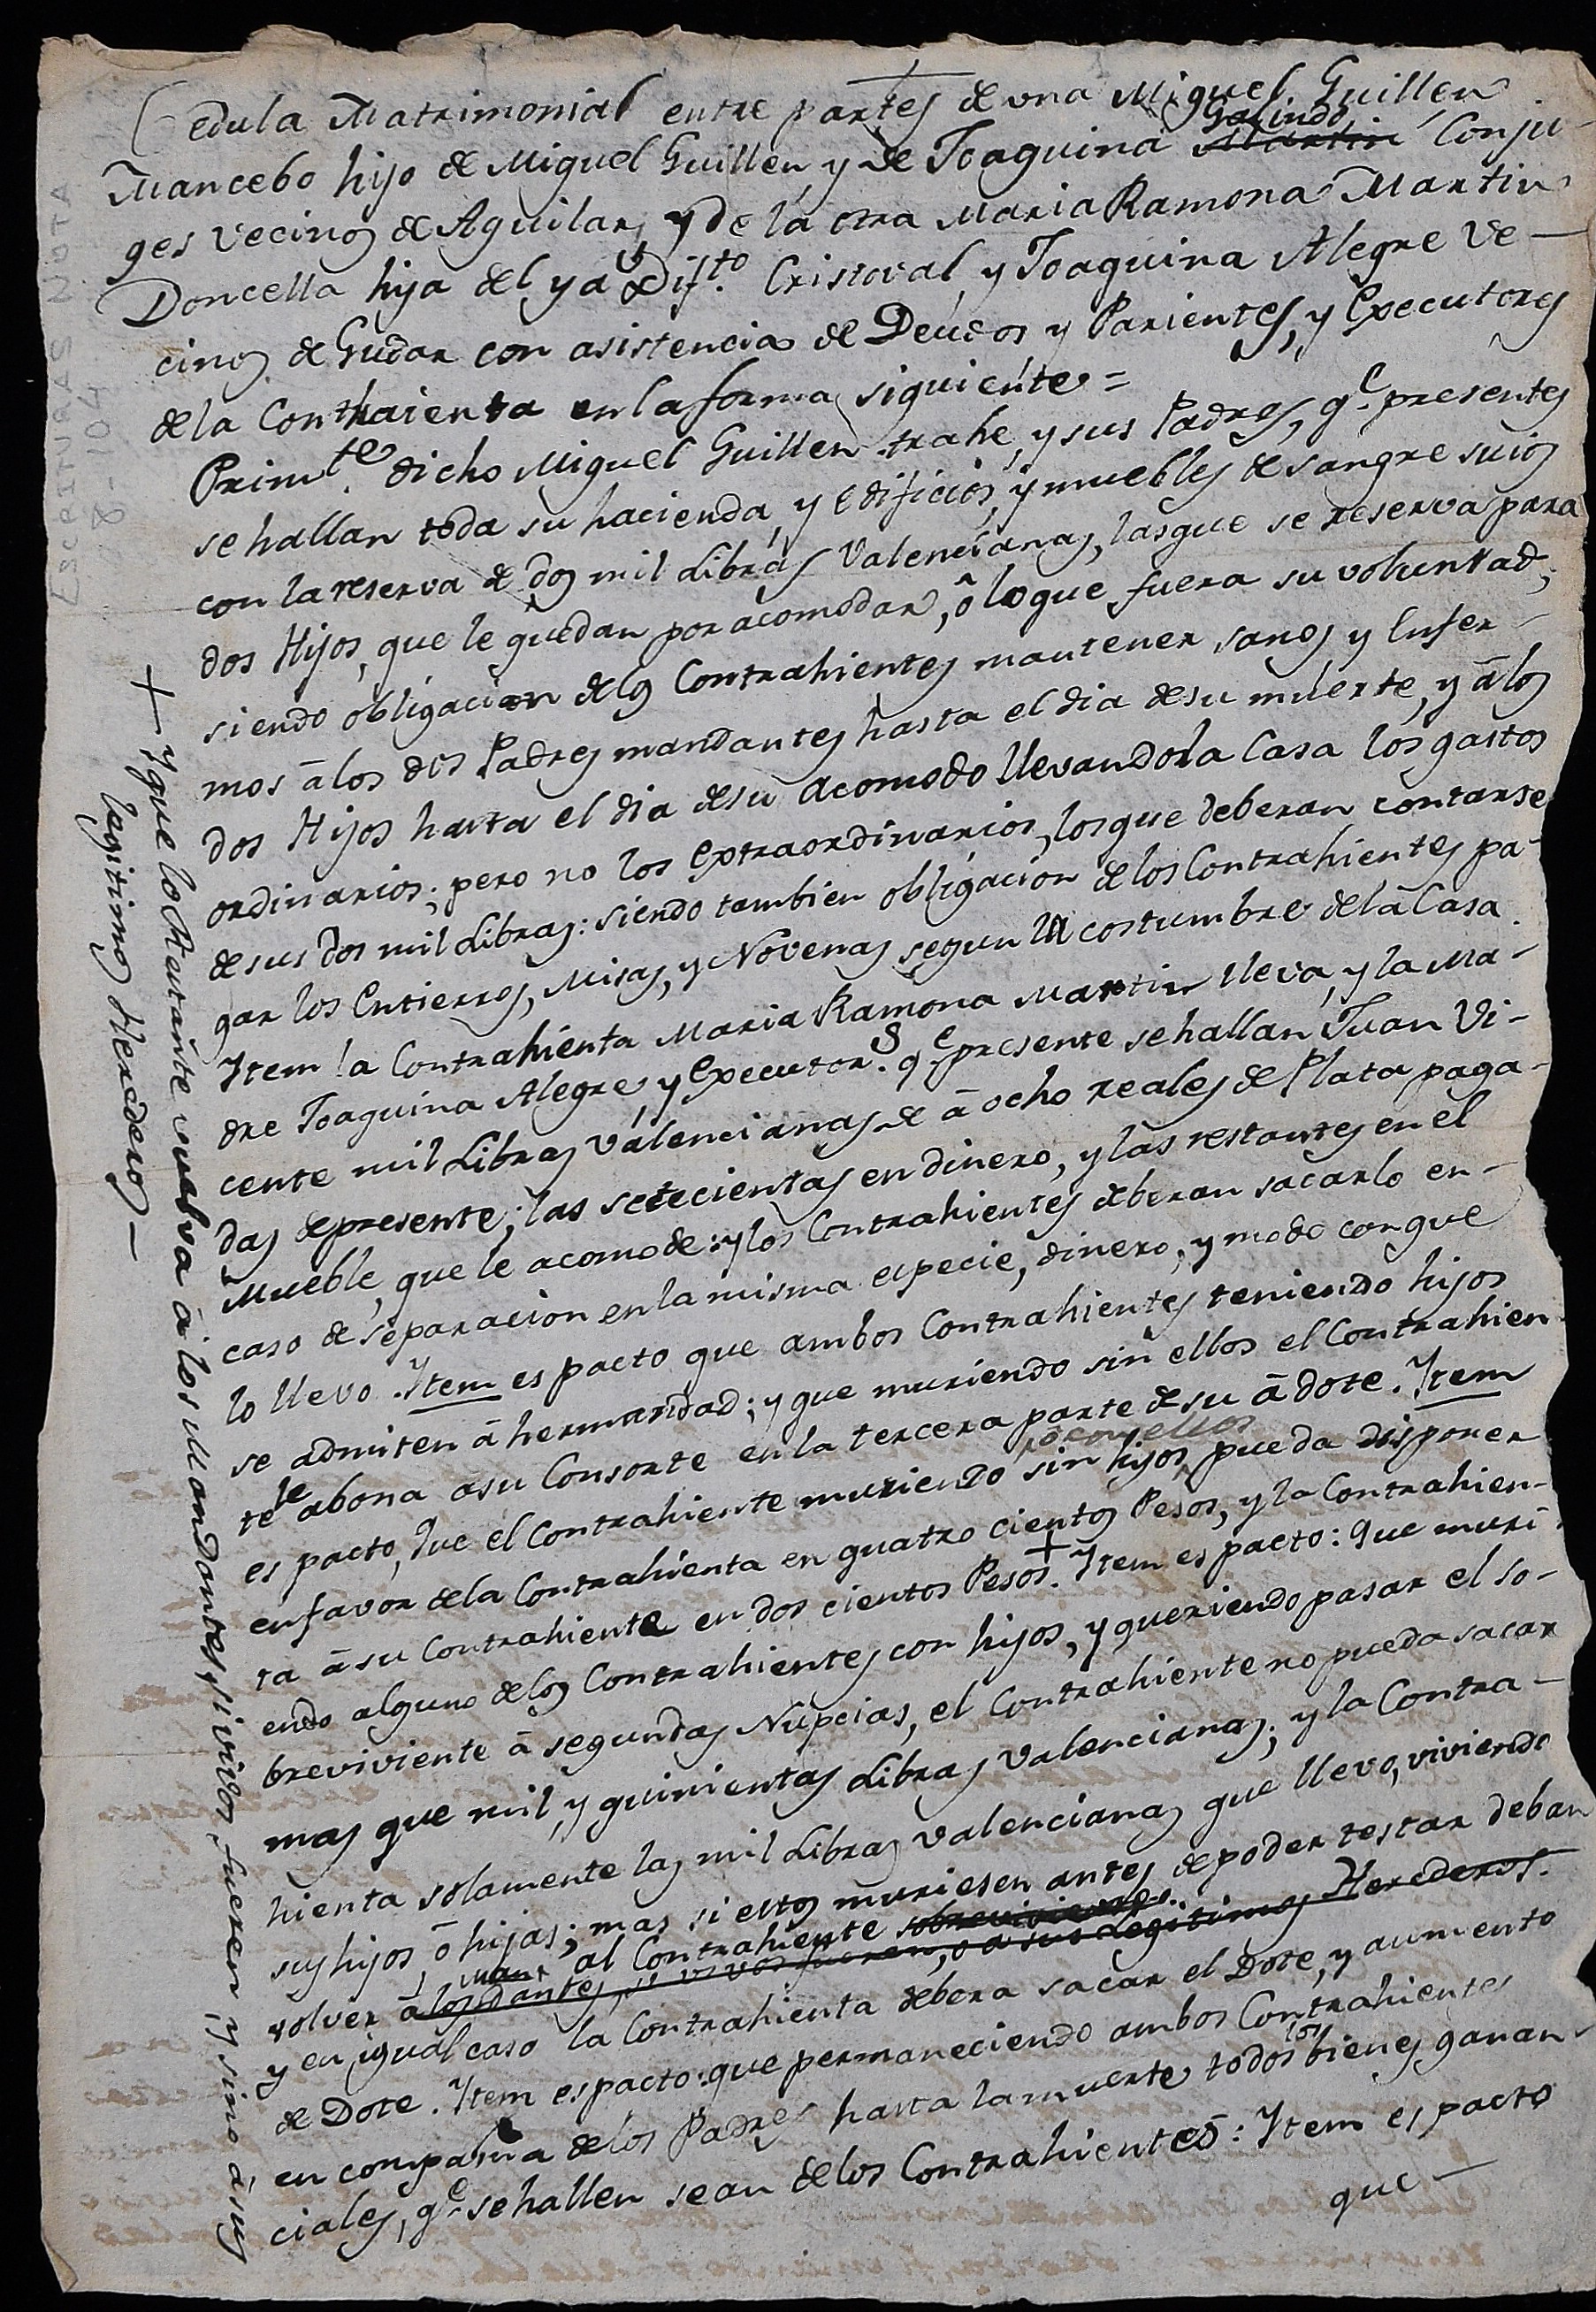 Cedula Matrimonial entre partes de una Miguel Guillen
Mancebo hijo de Miguel Guillen, y de Joaquina Galindo Martin Conju-
ges vecinos de Aguilar, y de la otra Maria Ramona Martin
Doncella hija del ya Dif.to Cristoval, y Joaquina Alegre Ve-
cinos de Gudar con asistencia de Deudos y Parientes, y Executores
de la Contraienta en la forma siguiente=
Prim.te dicho Miguel Guillen trahe, y sus Padres, q.e presentes
se hallan toda su hacienda, y edificios, y muebles de sangre suios
con la reserva de dos mil Libras Valencianas, las que se reserva para
dos Hijos, que le quedan por acomodar, ô lo que fuera su voluntad;
siendo obligacion de los Contrahientes mantener sanos y Enfer-
mos â los dos Padres mandantes hasta el dia de su muerte, y â los
dos Hijos hasta el dia de su acomodo llevando la Casa los gastos
ordinarios; pero no los extraordinarios, los que deberan contarse
de sus dos mil Libras: siendo tambien obligacion de los Contrahientes pa-
gar los Entierros, Misas, y Novenas segun la costumbre de la Casa.
Item la Contrahienta Maria Ramona Martin lleva, y la Ma-
dre Joaquina Alegre, y Executor.s q.e presente se hallan Juan Vi-
cente mil Libras Valencianas de â ocho reales de Plata paga-
das de presente; las setecientas en dinero, y las restantes en el
Mueble, que le acomode: y los Contrahientes deberan sacarlo en-
caso de separacion en la misma especie, dinero, y modo con que
lo llevo. Item es pacto que ambos Contrahientes teniendo hijos
se admiten â hermandad; y que muriendo sin ellos el Contrahien-
te le abona a su Consorte en la tercera parte de su â dote. Item
es pacto, que el Contrahiente muriendo sin hijos ô con ellos pueda disponer
en favor de la Contrahienta en quatro cientos Pesos, y la Contrahien-
ta â su Contrahiente en dos cientos Pesos.+ Item es pacto: que muri-
endo alguno de los Contrahientes con hijos, y queriendo pasar el so-
breviviente â segundas Nupcias, el Contrahiente no pueda sacar
mas que mil, y quinientas Libras Valencianas; y la Contra-
hienta solamente las mil Libras Valencianas que llevo, viviendo
sus hijos, ô hijas; mas si estos muriesen antes de poder testar deban
volver al Contrahiente sobreviviente. â los Mandantes, si vivos fueren, o a sus Legitimos Herederos.
y en igual caso la Contrahienta debera sacar el Dote, y aumento
de Dote. Item es pacto: que permaneciendo ambos Contrahientes
en compañia de los Padres hasta la muerte todos los bienes ganan-
ciales, q.e se hallen sean de los Contrahientes: Item es pacto
que-
+ y que lo Restante vuelva â los Mandantes, si vivos fueren, y sino â sus
legitimos Herederos-
ESCRITURAS NOTA
8-104